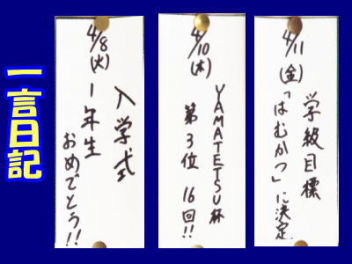 一言日記
4/8
(火)
入学式
1年生
おめでとう!!
4/10
(木)
YAMATETSU杯
第3位 16回!!
4/11
(金)
学級目標
「はむかつ」に決定